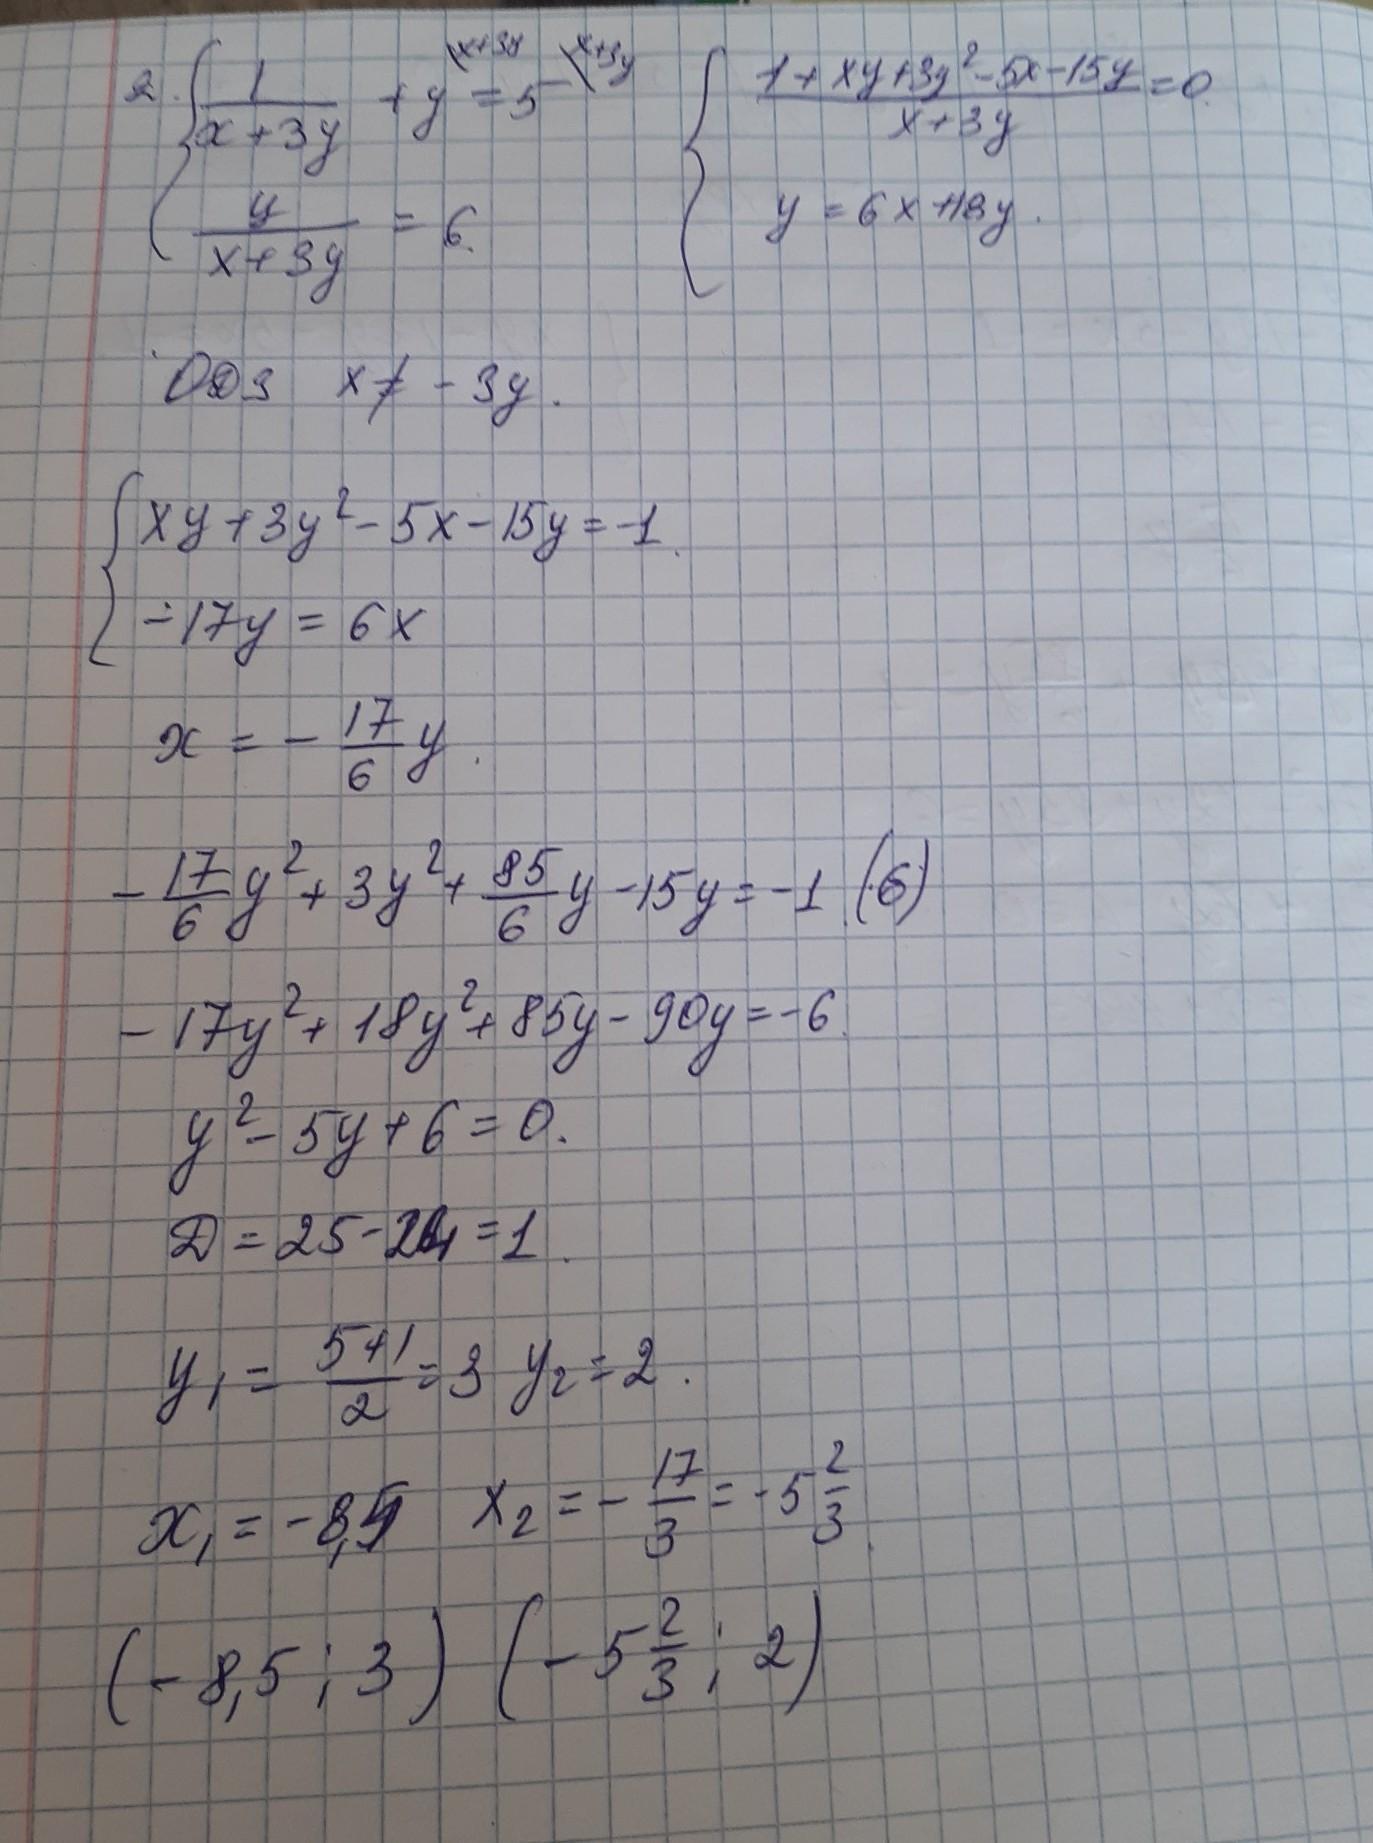 2. { 1/(x+3y) + y = 5 \x+3y \x+3y { (1+xy+3y²-5x-15y)/(x+3y) = 0.
y/(x+3y) = 6. y = 6x+18y.
ОДЗ x ≠ -3y.
{ xy+3y²-5x-15y=-1.
-17y = 6x
x = -17/6 y.
-17/6 y² + 3y² + 85/6 y - 15y = -1 (6)
-17y² + 18y² + 85y - 90y = -6.
y² - 5y + 6 = 0.
D = 25-24 = 1.
y₁ = (5+1)/2 = 3 y₂ = 2.
x₁ = -8,5 x₂ = -17/3 = -5 2/3.
(-8,5 ; 3) (-5 2/3 ; 2)